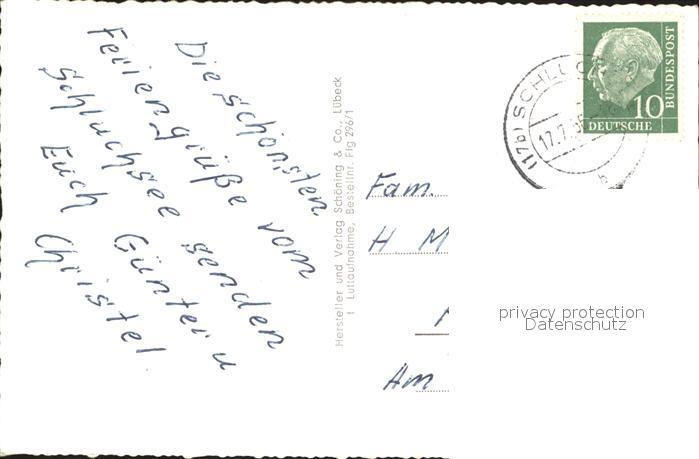 Die schönsten
Feriengrüße vom
Schluchsee senden
Euch Günter u
Christel.
Hersteller und Verlag Schöning & Co., Lübeck
Luftaufnahme, Bestellnr. Fig 296/1
Fam.
H M
Am
(17b) SCHLUCHSEE
17.7.
b
10
DEUTSCHE
BUNDESPOST
privacy protection
Datenschutz